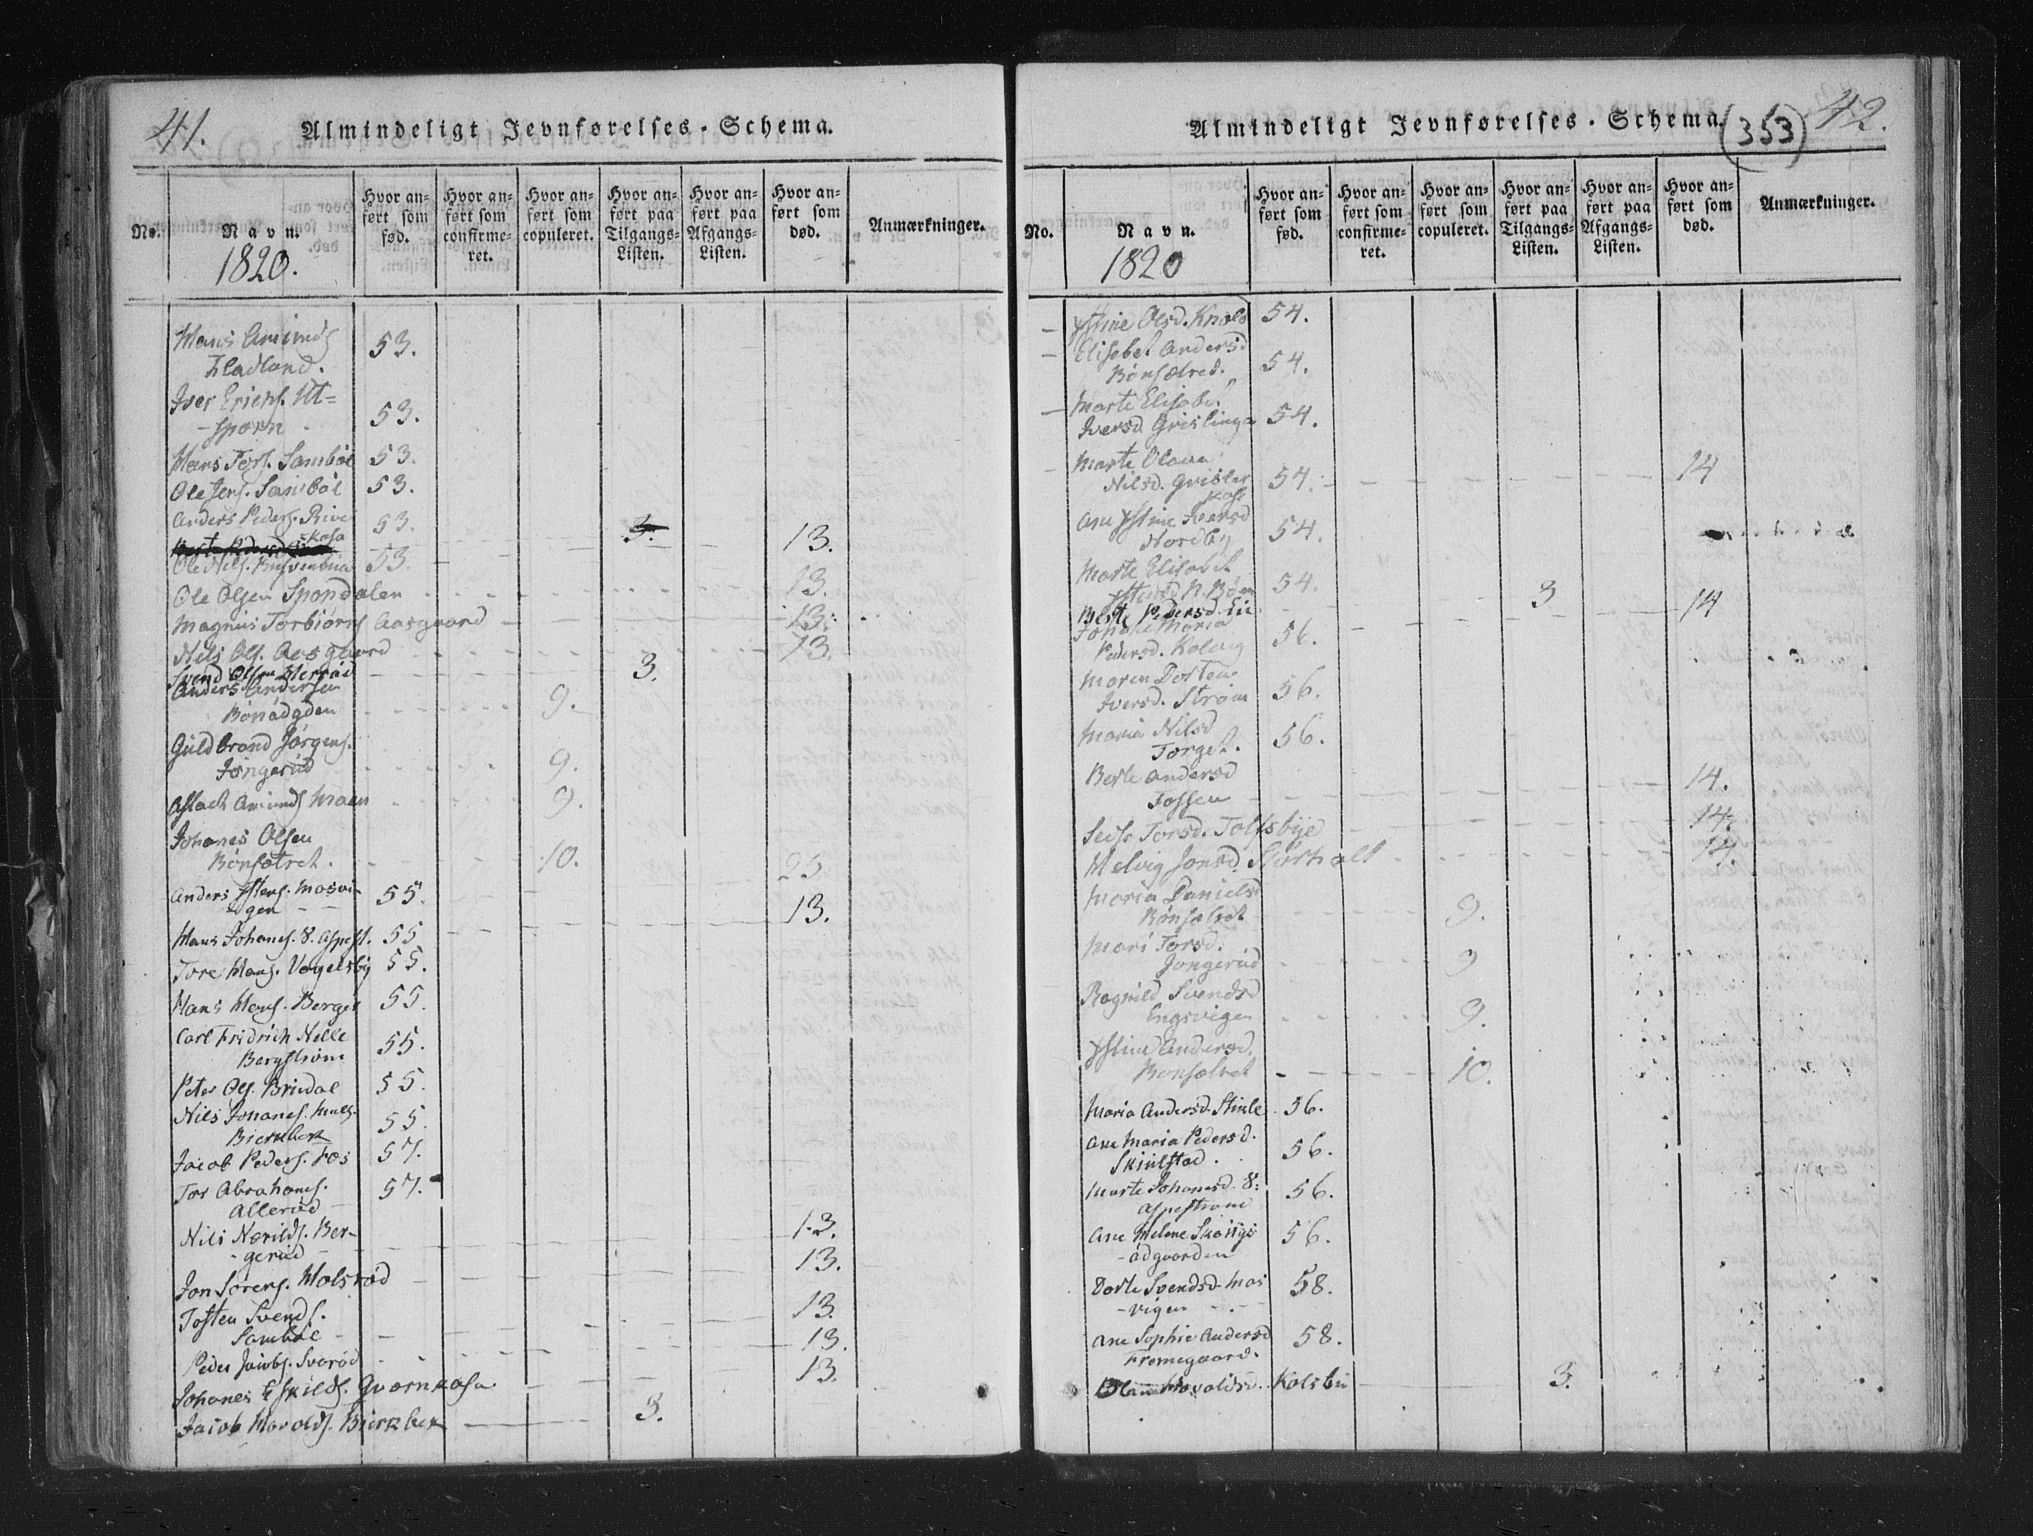 41.
Almindeligt Jevnførelses-Schema.
No.
Navn.
1820.
Hvor anført som fød.
Hvor anført som confirmeret.
Hvor anført som copuleret.
Hvor anført paa Tilgangs-Listen.
Hvor anført paa Afgangs-Listen.
Hvor anført som død.
Anmærkninger.
Hans Amunds
Fladland. 53.
Iver Erichs. Ut=
-sporn 53.
Hans Tors. Sambøl 53.
Ole Jens. Sambøl 53.
Anders Peders. Rive 53.
kasa 3. 13.
Ole Nils. 53. 13.
Ole Olsen Spondalen 13.
Magnus Torbiørns Aasgaard 13.
Nils Ols. Aasgaard 13.
Svend Olsen Herrød 3.
Anders Andersen
Bønødgden 9.
Guldbrand Jørgens.
Jongerud 9.
Aslack Amunds Moen 9.
Johanes Olsen
Bønsætret. 10. 25
Anders Ystens. Mosvi-
-gen 55. 13.
Hans Johanes. 8. Aspest. 55
Tore Hans. Vogelsby 55.
Hans Hans. Berger 55.
Carl Fridrich Nelle
Bergstrøm 55.
Peter Ols. Bridal 55.
Nils Johanes. Hults.
Bierkbek 55.
Jacob Peders. Fos 57.
Tor Abrahams.
Allerud 57.
Nils Narilds. Ber-
-gerud 13.
Jon Sørens. Holsrød 13.
Tosten Svends.
Sambøl 13.
Peder Jacobs. Svarød 13.
Johanes Eskilds. Gvarnkasa 13.
Jacob Harolds. Bierkbek 3.
42.
(353)
Almindeligt Jevnførelses-Schema.
No.
Navn.
1820
Hvor anført som fød.
Hvor anført som confirmeret.
Hvor anført som copuleret.
Hvor anført paa Tilgangs-Listen.
Hvor anført paa Afgangs-Listen.
Hvor anført som død.
Anmærkninger.
Ystine Olsd. Knold 54.
Elisabet Andersd
Bønsætred. 54.
Marte Elisabe.
Iversd. Grislinga 54.
Marte Olava
Nilsd. Grisler
kase 54. 14
Ane Ystine Iversd
Nordby 54.
Marte Elisabet
Ystensd N. Bøn 54.
Berte Pedersd. Lie 3 14
Johane Maria
Pedersd. Kolvig 56.
Maren Dorten
Iversd. Strøm 56.
Maria Nilsd
Torget. 56.
Berte Andersd
Fossen 14.
Sedse Torsd. Tolfsbye 14.
Helvig Jonsd. Størholt 14.
Maria Danielsd
Bønsætret 9.
Mari Torsd.
Jongerud 9
Ragnild Svendsd
Engsvigen 9.
Ystine Andersd.
Bønsætret 10.
Maria Andersd. Stinle 56.
Ane Maria Pedersd.
Skiulstad. 56.
Marte Johanesd. 8:
Aspestrøm 56.
Ane Helene Skougs
-ødgaarden 56.
Dorte Svendsd. Mos
-vigen 58.
Ane Sophie Andersd
Fremegaard. 58.
Haraldsd. Kolsbu 3.